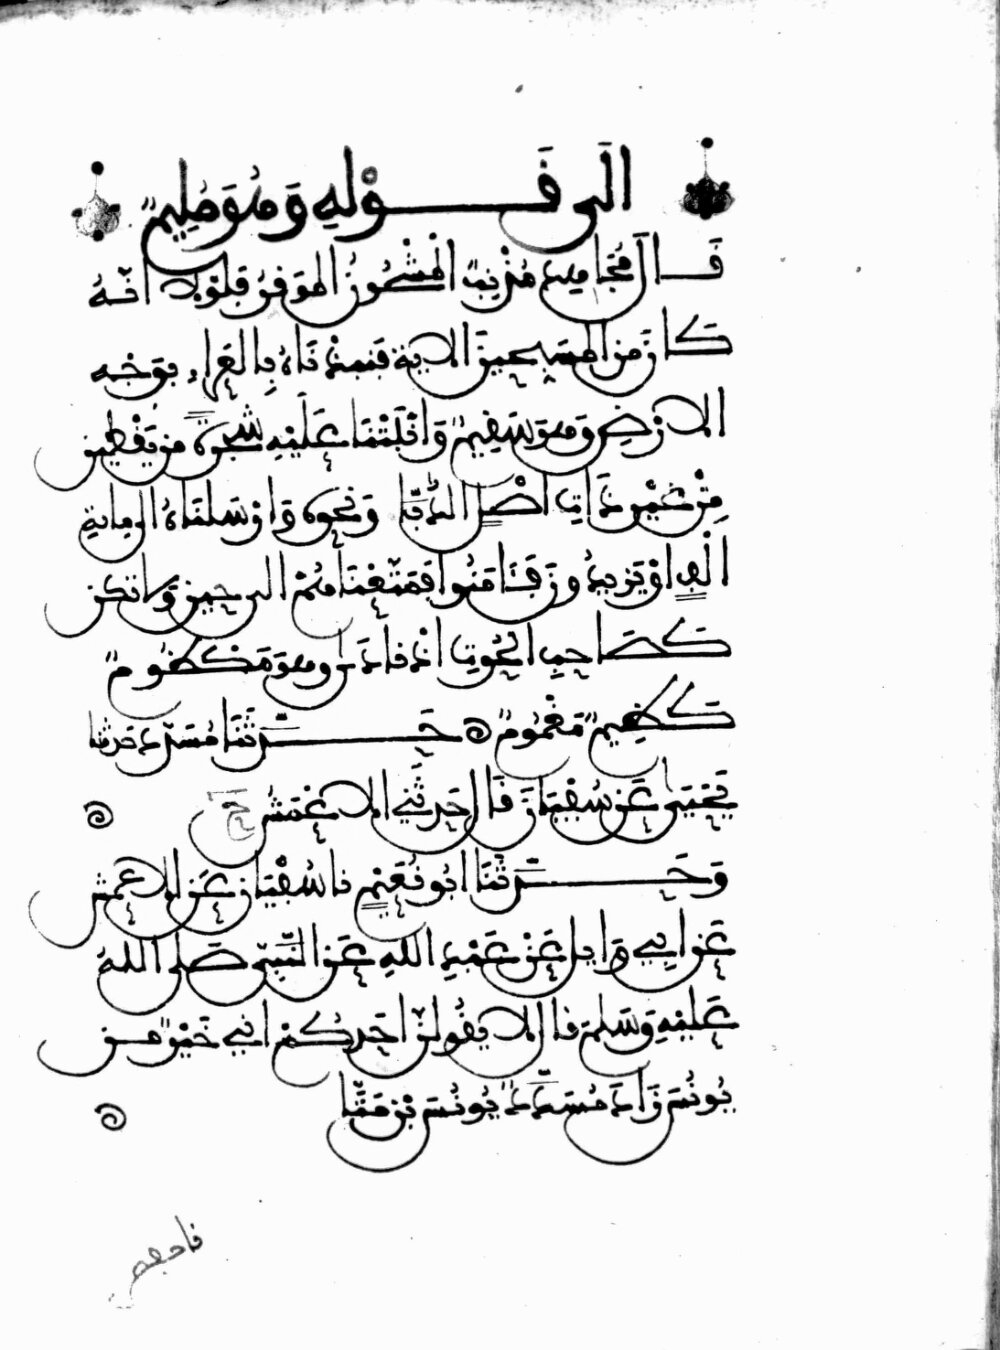 الَى قَوْلِهِ وَهُوَ مُلِيمٌ
قَالَ مُجَاهِدٌ مُذْنِبٌ الْمَشْحُونُ الْمُوقَرُ فَلَوْلَا أَنَّهُ
كَانَ مِنَ الْمُسَبِّحِينَ الاية فَنَبَذْنَاهُ بِالْعَرَاءِ بِوَجْهِ
الارْضِ وَهُوَ سَقِيمٌ وَأَنْبَتْنَا عَلَيْهِ شَجَرَةً مِنْ يَقْطِينٍ
مِنْ غَيْرِ ذَاتِ اصْلٍ الدُّبَّا وَنَحْوِهِ وَارْسَلْنَاهُ الى مِائَةِ
الْفٍ اوْ يَزِيدُونَ فَآمَنُوا فَمَتَّعْنَاهُمْ الى حِينٍ وَلَا تَكُنْ
كَصَاحِبِ الْحُوتِ اذْ نَادَى وَهُوَ مَكْظُومٌ
كَظِيمٌ مَغْمُومٌ حَدَّثَنَا مُسَدَّدٌ حدثنا
يَحْيَى عَنْ سُفْيَانَ قَالَ حَدَّثَنِي الاعْمَشُ ح
وَحَدَّثَنَا ابُو نُعَيْمٍ نا سُفْيَانُ عَنِ الاعْمَشِ
عَنْ ابِي وَايِلٍ عَنْ عَبْدِ اللهِ عَنِ النَّبِيِّ صَلَّى اللهُ
عَلَيْهِ وَسَلَّمَ قال لا يَقُولَنَّ احَدُكُمْ انِّي خَيْرٌ مِنْ
يُونُسَ زَادَ مُسَدَّدٌ يُونُسَ بْنِ مَتَّى